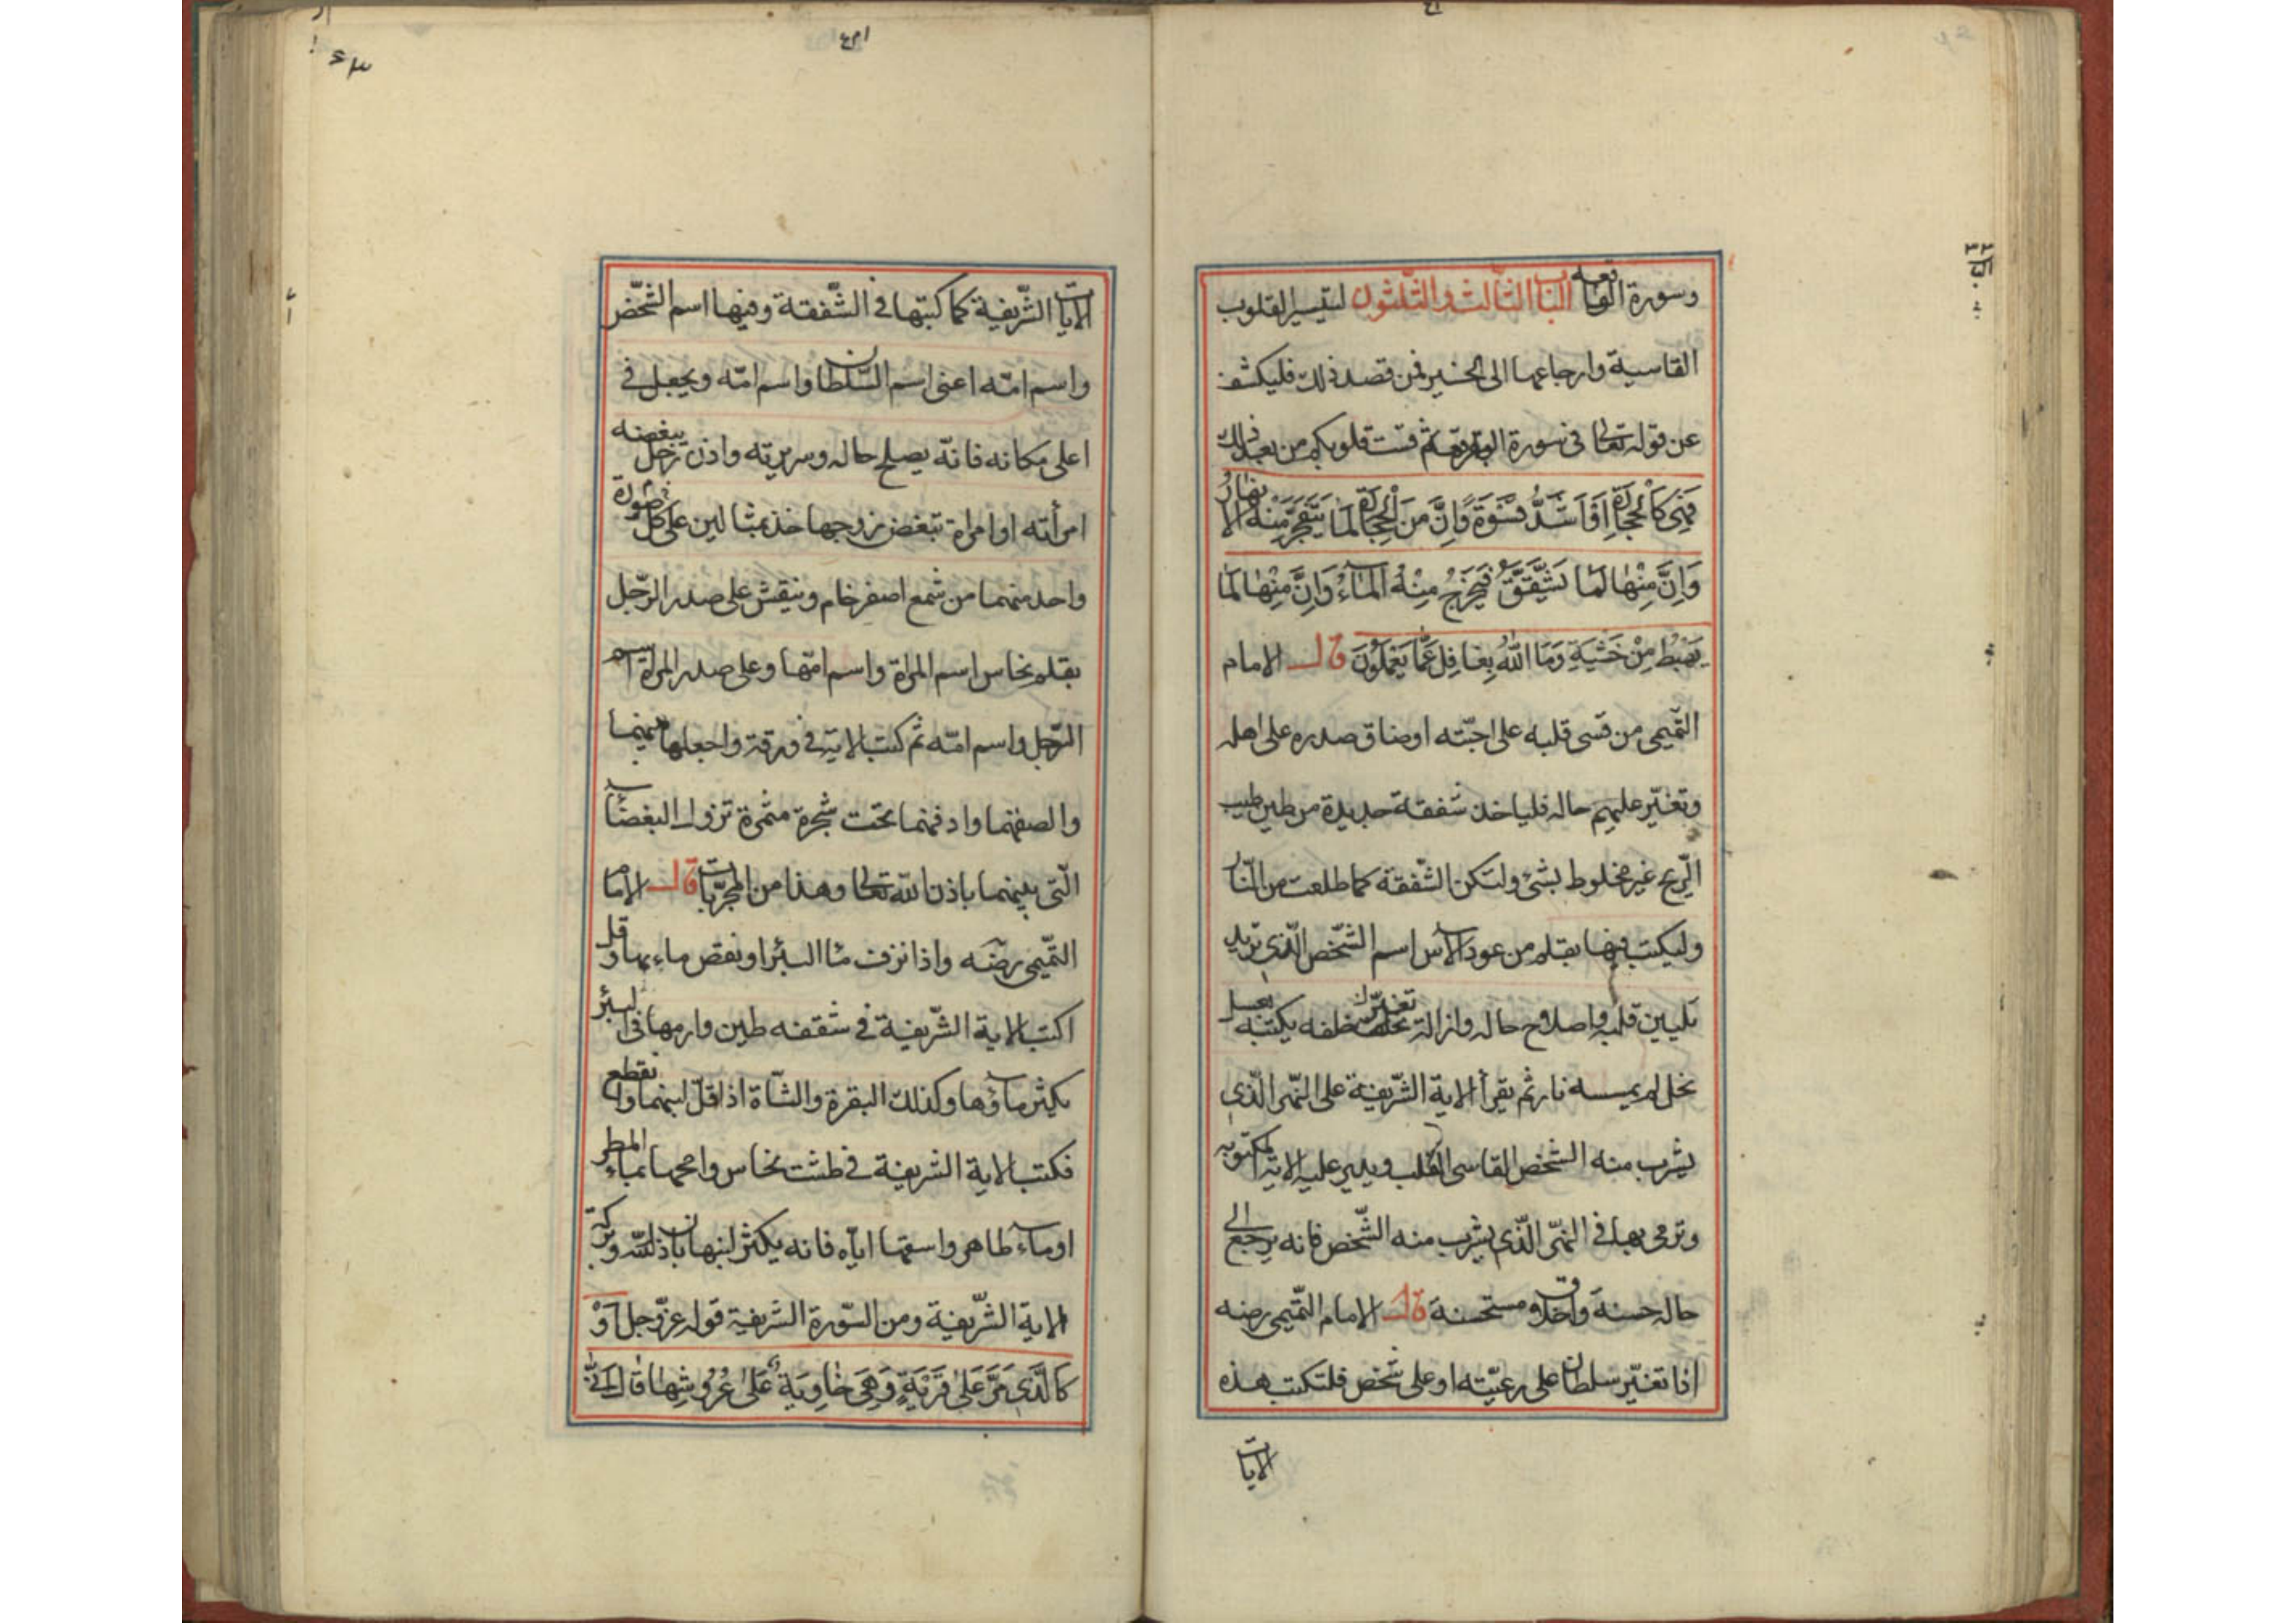 وسورة الواقعه الباب الثالث والثلثون لتيسير القلوب
القاسية وارجاعها الى الخير فمن قصد ذلك فليكشف
عن قوله تعالى فى سورة البقرة ثم قست قلوبكم من بعد ذلك
فَهِىَ كَالْحِجَارَةِ اَوْ اَشَدُّ قَسْوَةً وَاِنَّ مِنَ الْحِجَارَةِ لَمَا يَتَفَجَّرُ مِنْهُ الاَنْهَارُ
وَاِنَّ مِنْهَا لَمَا يَشَّقَّقُ فَيَخْرُجُ مِنْهُ الْمَاءُ وَاِنَّ مِنْهَا لَمَا
يَهْبِطُ مِنْ خَشْيَةِ وَمَا اللّٰهُ بِغَافِلٍ عَمَّا يَعْمَلُونَ قال الامام
التّميمى من قسى قلبه على احبّته او ضاق صدره على اهله
وتغيّر عليهم حاله فلياخذ شقفة جديدة من طين طيب
الرّيح غير مخلوط بشئ ولتكن الشّقفة كما طلعت من النّار
وليكتب فيها بقلم من عود الآس اسم الشّخص الّذى تريد
تليين قلبه واصلاح حاله وازالة تغيّر خلفه يكتبه بعسل
نحل لم يمسسه نار ثم يقرأ الاية الشّريفة على النّهر الّذى
يشرب منه الشخص القاسى القلب ويدير عليه الاية المكتوبه
وترمى بها فى النهر الّذى يشرب منه الشّخص فانه يرجع الى
حاله حسنة واخلاق مستحسنة قال الامام التّميمى رضه
اذا تغيّر سلطان على رعيّته او على شخص فلتكتب هذه
الايات
الايات الشّريفة كما كتبتها فى الشّقفة وفيها اسم الشّخص
واسم امّه اعنى اسم السّلطان واسم امّه ويجعل فى
اعلى مكانه فانّه يصلح حاله وسريرته واذن رجل يبغضه
امرأته او امراة تبغض زوجها خذ مثالين على كل صورة
واحد منهما من شمع اصفر خام وينقش على صدر الرّجل
بقلم نحاس اسم المراة واسم امّها وعلى صدر المراة اسم
الرّجل واسم امّه ثم كتب الاية فى ورقة واجعلها بينهما
والصقهما وادفنهما تحت شجرة مثمرة تزول البغضاء
الّتى بينهما باذن اللّه تعالى وهذا من المجرّبات قال الامام
التّميمى رضه واذا نزف ماء البئر او نقص ماء بها وقل
اكتب الاية الشّريفة فى شقفه طين وارمها فى البئر
يكثر ماؤها وكذلك البقرة والشّاة اذا قلّ لبنهما وانقطع
فكتب الاية الشريفة فى طشت نحاس وامحها بماء المطر
او ماء طاهر واسقها ايّاه فانه يكثر لبنها باذن اللّه وبركة
الاية الشّريفة ومن السّورة الشريفة قوله عزّ وجل اَوْ
كَالَّذِى مَرَّ عَلىٰ قَرْيَةٍ وَهِىَ خَاوِيَةٌ عَلىٰ عُرُوشِهَا قَالَ اَنّٰى